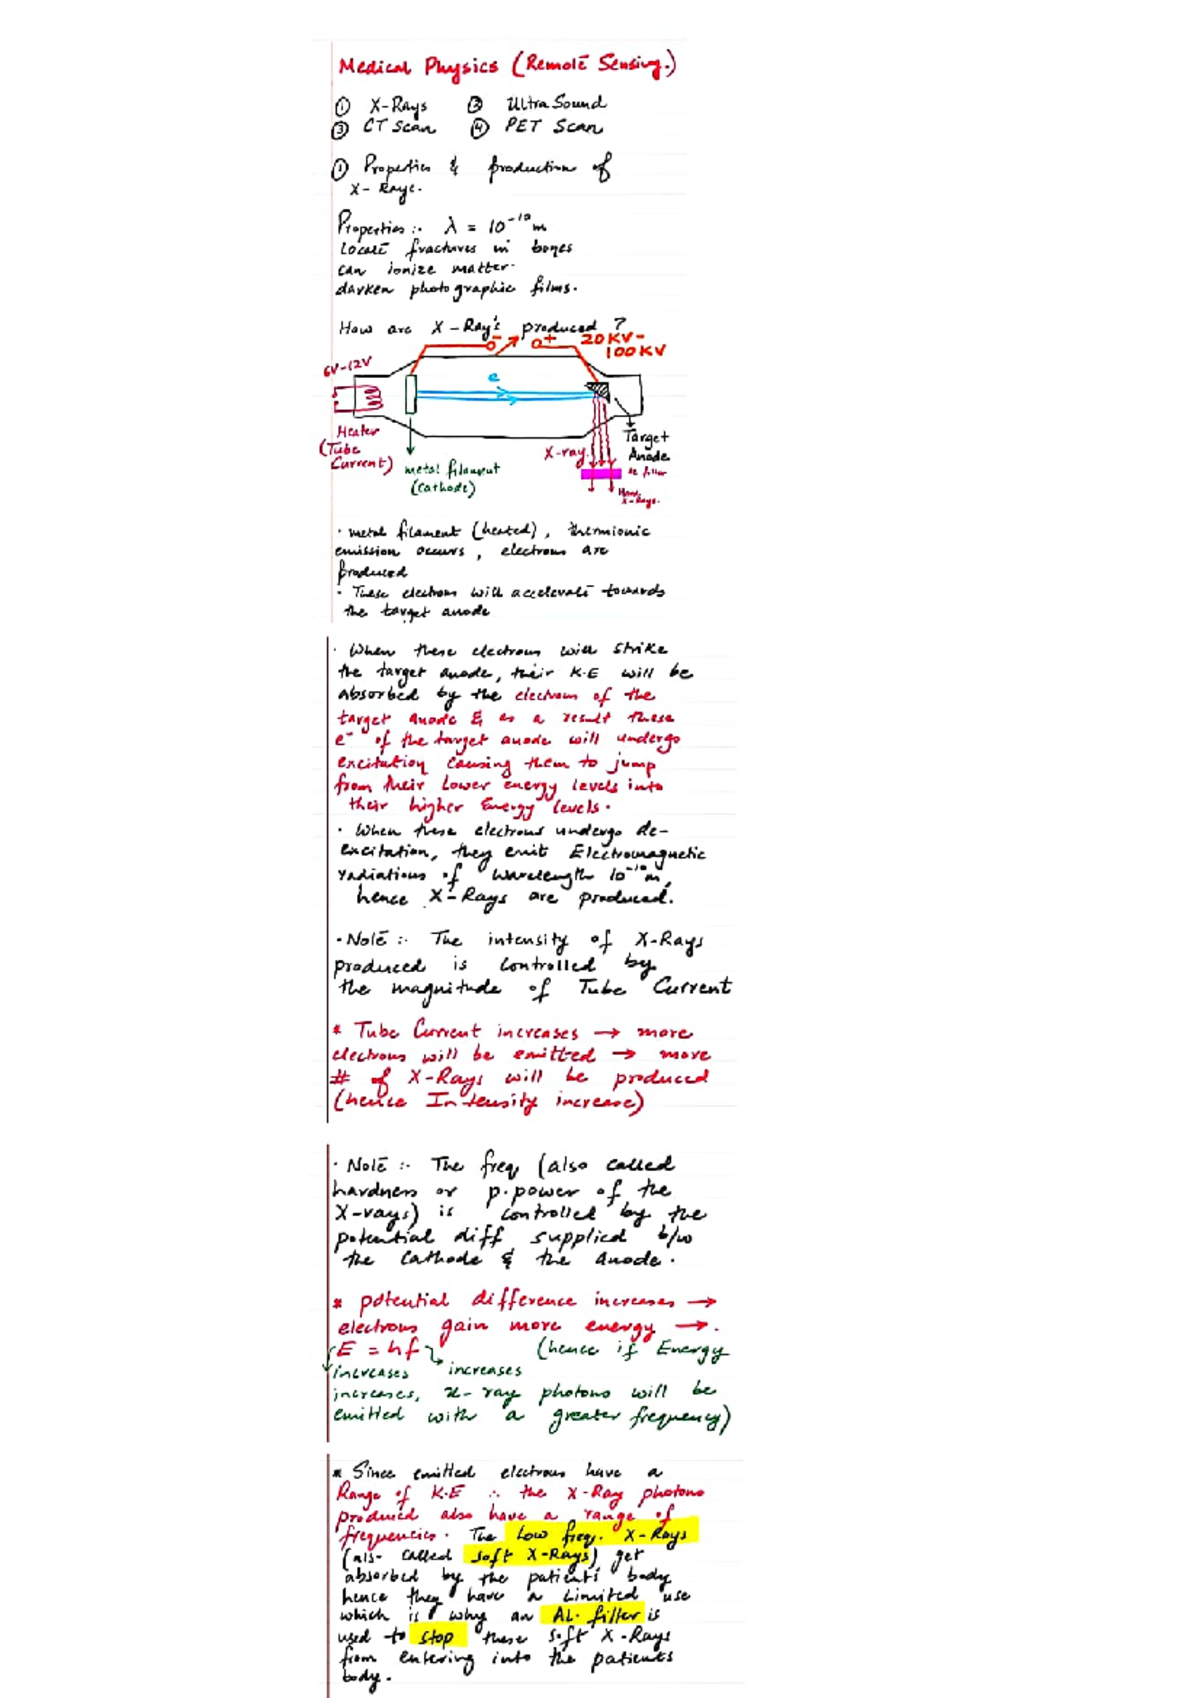 Medical Physics (Remote Sensing.)
① X-Rays ② Ultra Sound
③ CT Scan ④ PET Scan
① Properties & production of
X-Rays.
Properties :- λ = 10⁻¹⁰ m
Locate fractures in bones
can ionize matter.
darken photographic films.
How are X-Ray's produced ?
- + 20KV-
100KV
6V-12V
e
Heater
(Tube
Current)
metal filament
(cathode)
X-ray
Target
Anode
Al filter
Hard
X-Rays.
· metal filament (heated), thermionic
emission occurs, electrons are
produced
· These electrons will accelerate towards
the target anode
· When these electrons will strike
the target anode, their K.E will be
absorbed by the electrons of the
target anode & as a result these
e⁻ of the target anode will undergo
excitation causing them to jump
from their lower energy levels into
their higher Energy levels.
· When these electrons undergo de-
excitation, they emit Electromagnetic
radiations of wavelength 10⁻¹⁰ m,
hence X-Rays are produced.
· Note :- The intensity of X-Rays
produced is controlled by
the magnitude of Tube Current
* Tube Current increases → more
electrons will be emitted → more
# of X-Rays will be produced
(hence Intensity increase)
· Note :- The freq (also called
hardness or p.power of the
X-rays) is controlled by the
potential diff supplied b/w
the cathode & the anode.
* potential difference increases →
electrons gain more energy →.
E = hf (hence if Energy
increases increases
increases, x-ray photons will be
emitted with a greater frequency)
* Since emitted electrons have a
Range of K.E ∴ the X-Ray photons
produced also have a range of
frequencies. The Low freq. X-Rays
(als- called soft X-Rays) get
absorbed by the patients' body
hence they have a limited use
which is why an AL. filter is
used to stop these soft X-Rays
from entering into the patients
body.